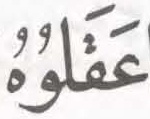 عَقَلُوهُ